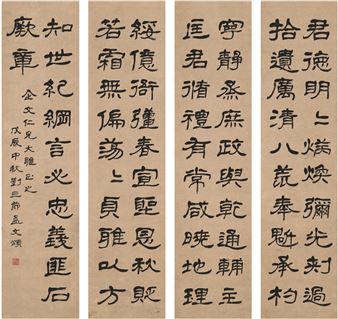 君德明〻炳煥彌光刺過
拾遺厲清八荒奉魁承杓
寧靜烝庶政與乾通輔主
匡君脩禮有常咸曉地理
綏億衙彊春宣聖恩秋貶
若霜無偏蕩〻貞雅以方
知世紀綱言必忠義匪石
厥章
企文仁兄大雅正之
戊辰中秋劉三節孟文頌